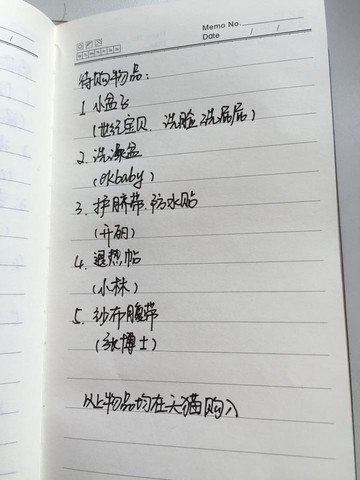 Memo No.
Date / /
待购物品:
1. 小盆子
(世纪宝贝. 洗脸 洗屁屁)
2. 洗澡盆
(okbaby)
3. 护脐带. 防水贴
(开丽)
4. 退热帖
(小林)
5. 纱布腹带
(张博士)
以上物品均在天猫购入